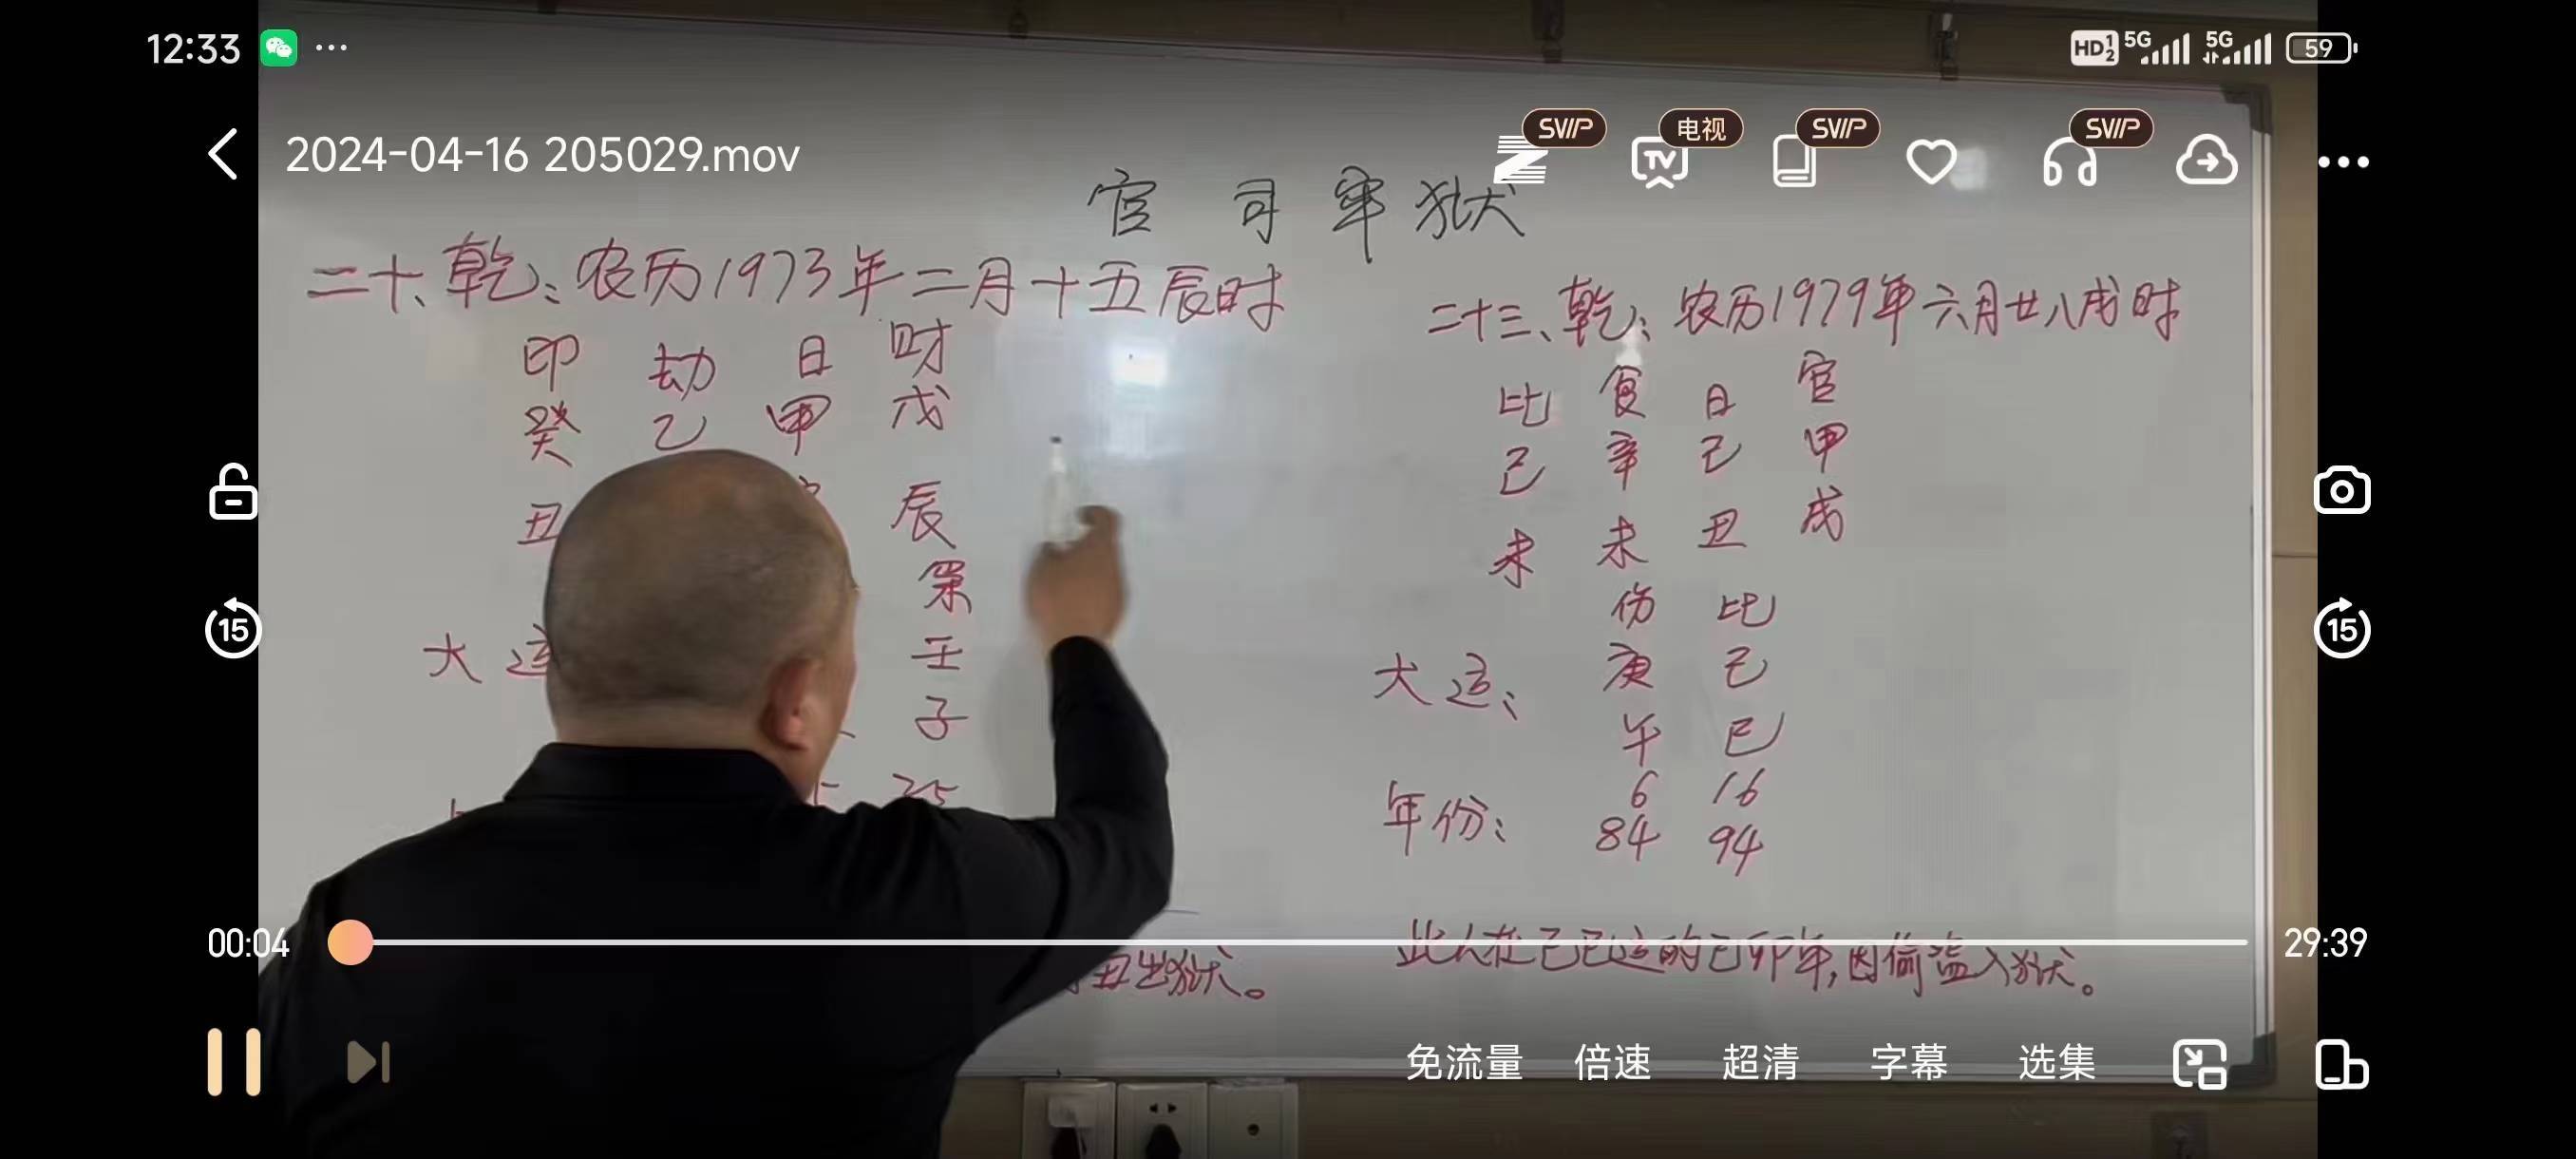 12:33 ... HD 1 2 5G 5G 59
2024-04-16 205029.mov
SVIP 电视 SVIP SVIP
TV
官司牢狱
二十、乾：农历1973年二月十五辰时
印 劫 日 财
癸 乙 甲 戊
丑 辰
枭
大运 壬
子
35
丑出狱。
二十三、乾：农历1979年六月廿八戌时
比 食 日 官
己 辛 己 甲
未 未 丑 戌
伤 比
大运： 庚 己
午 巳
6 16
年份： 84 94
此人在己巳运的己卯年，因偷盗入狱。
15 15
00:04 29:39
免流量 倍速 超清 字幕 选集